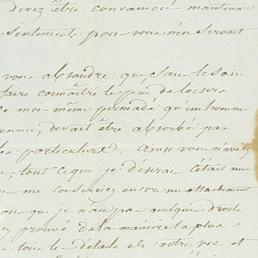 Devez être convaincu maintenant
sentiments pour vous n'en seront
vous absoudre que sans le soin
faire connaître le peu de loisir
moi-même persuadé qu'un homme
devait être absorbé par
particuliers. Ainsi vous n'aviez
tout ce que je désirais c'était un
me conserviez encore un attachement
que je n'aie pas quelque droits
prouvé de la manière la plus
tous les détails de votre vie et